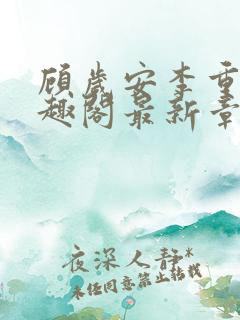 顾岁安李重
趣阁最新章
夜深人静*
未经同意禁止转载